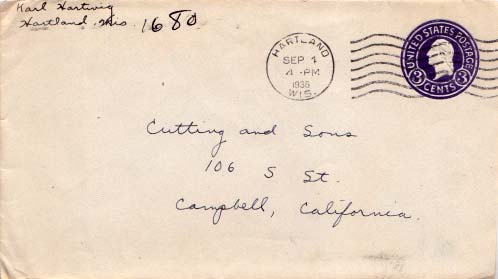 Karl Hartwig
Hartland, Wis.
1680
HARTLAND
SEP 1
4 -PM
1936
WIS.
UNITED STATES POSTAGE
3 CENTS 3
Cutting and Sons
106 S St.
Campbell, California.